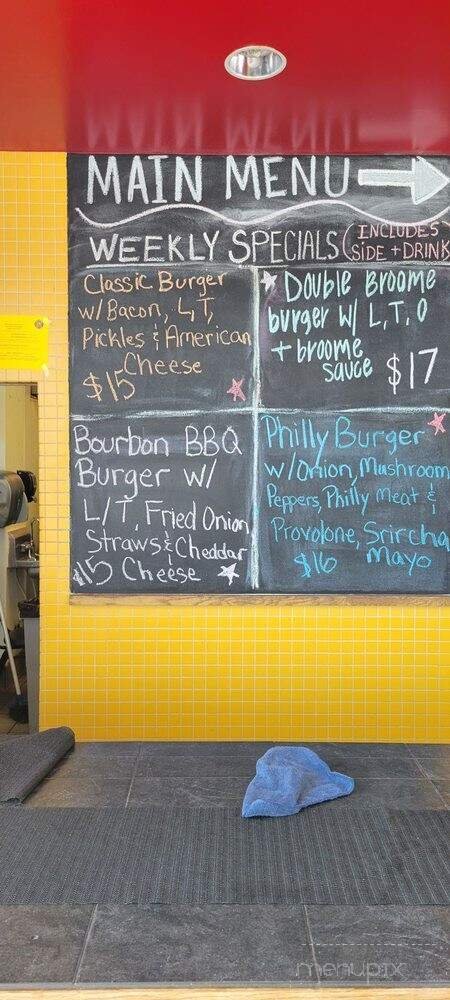 MAIN MENU
WEEKLY SPECIALS (INCLUDES
SIDE + DRINK
Classic Burger
w/ Bacon, L, T,
Pickles & American
Cheese
$15
Double Broome
burger w/ L, T, O
+ broome
sauce $17
Bourbon BBQ
Burger w/
L/T, Fried Onion
Straws & Cheddar
$15 Cheese
Philly Burger
w/Onion, Mushroom
Peppers, Philly Meat &
Provolone, Srircha
$16 Mayo
menupix